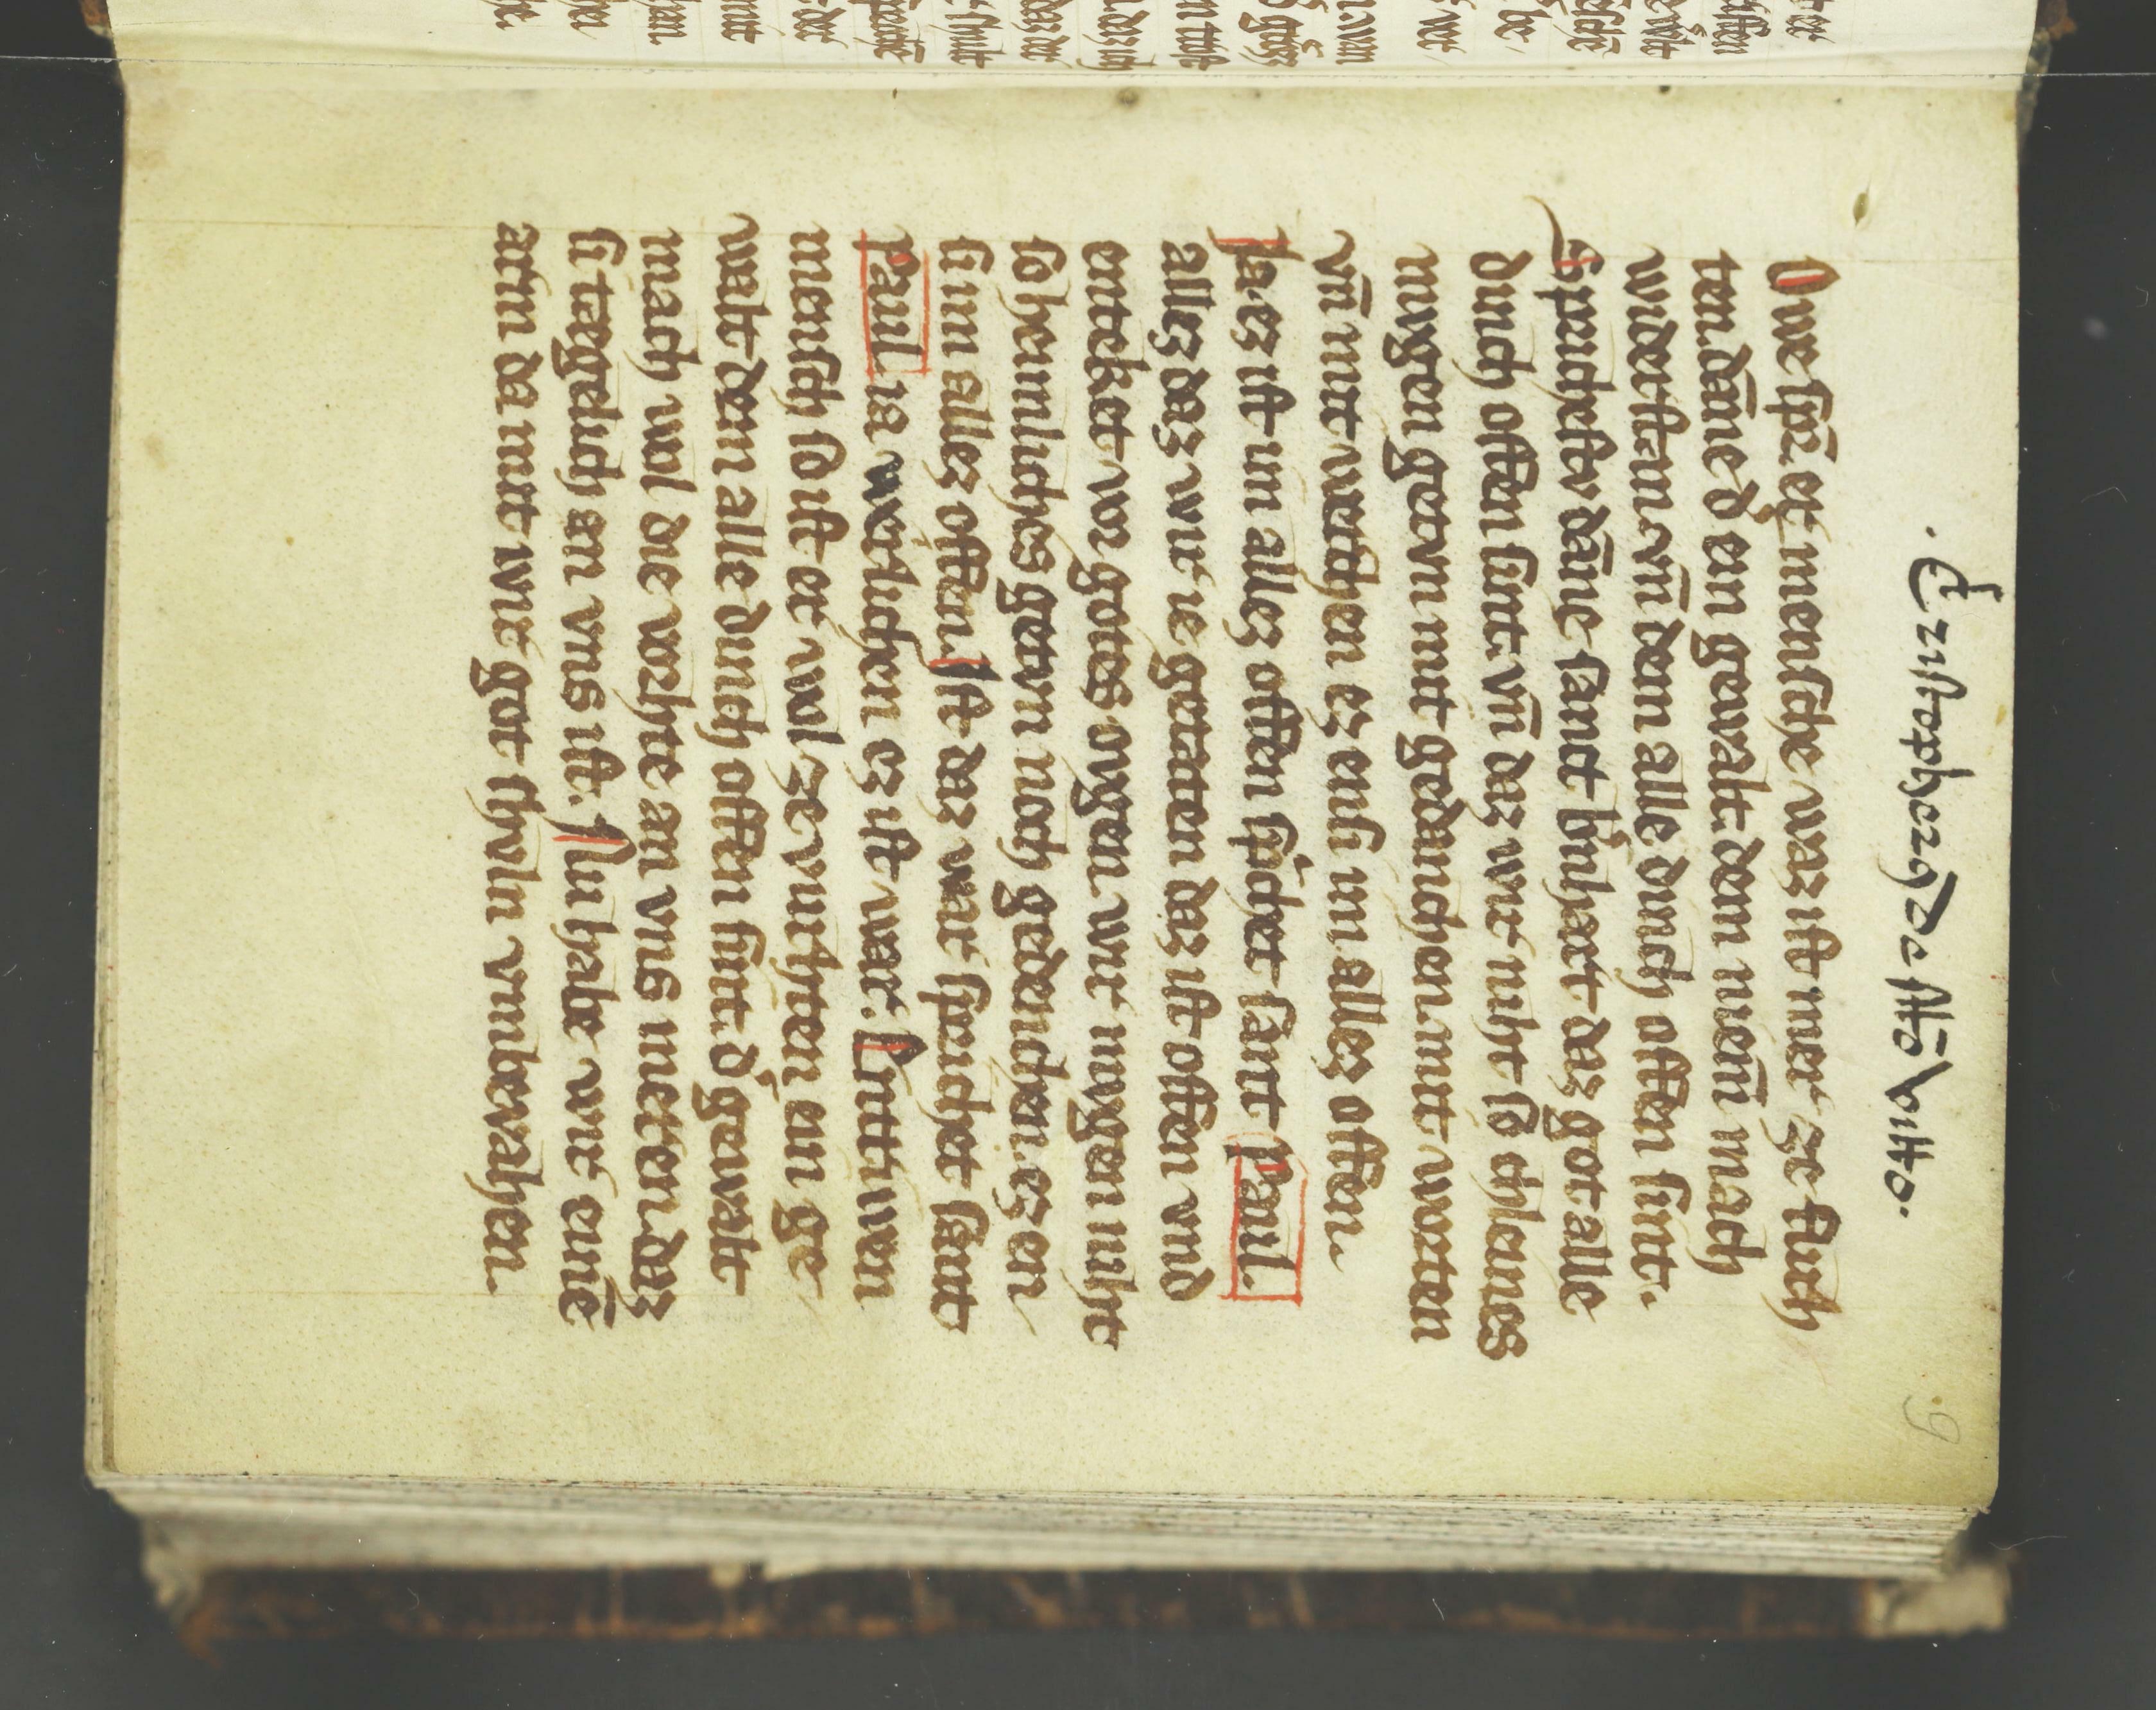 .Christophorus de Attavitto.
9
Owe spͬ et mensche waz ist mer ze furh
ten. dāne d᾽ ein gewalt. dem niem̄ mach
widerstan. vn̄ dem alle durch offen sint.
Sprichestv dāne sanct Bͦnhart daz got alle
durch offen sint. vn̄ daz wir niht so chlanes
mvgen getvn mit gedanchen. mit worten
vn̄ mit werchen ez ensi im allez offen.
Ja. ez ist im allez offen sp᾽chet sant Paul.
allez daz wir ie getaten daz ist offen vnd
entekct vor gotes ovgen. wir mvgen niht
so heimliches getvn noch gedenchen. ez en
si im allez offen. Ist daz war sprichet sant
Paul. ia werlichen ez ist war. Entriwen
mensch so ist er wol ze vurhten ein ge
walt dem alle durch offen sint. d᾽ gewalt
mach wol die vorhte an vns meren. daz
si taegelich an vns ist. Nu habe wir einē
arm da mit wir got svln vmbevahen.